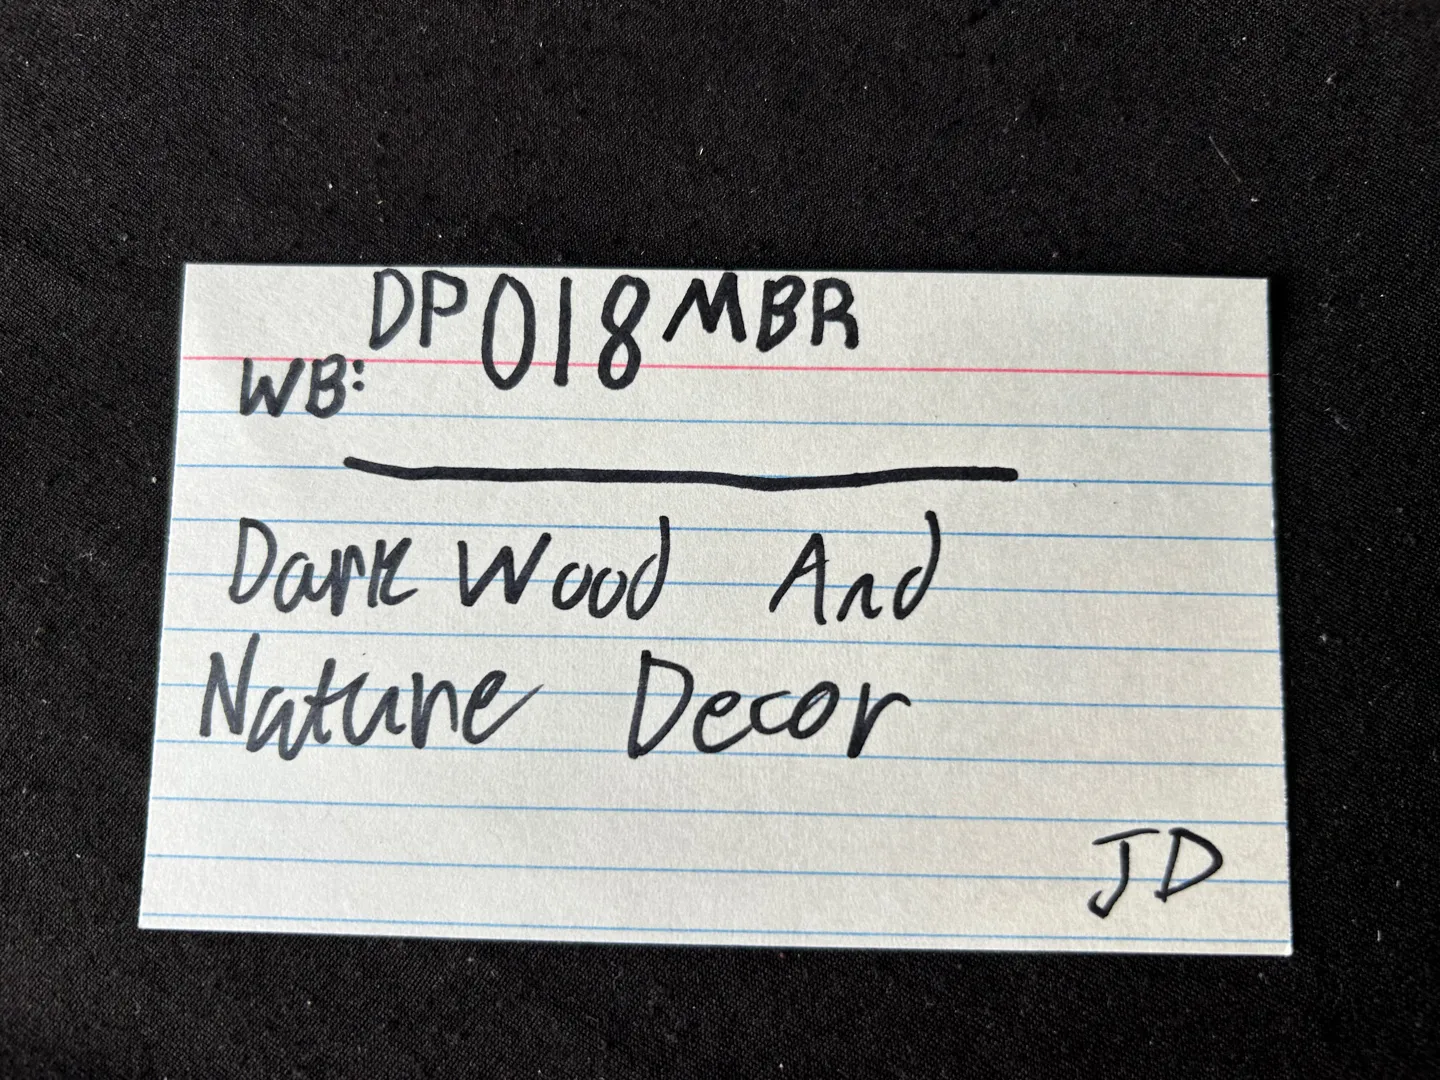 DP018MBR
WB:
Dark Wood And
Nature Decor
JD